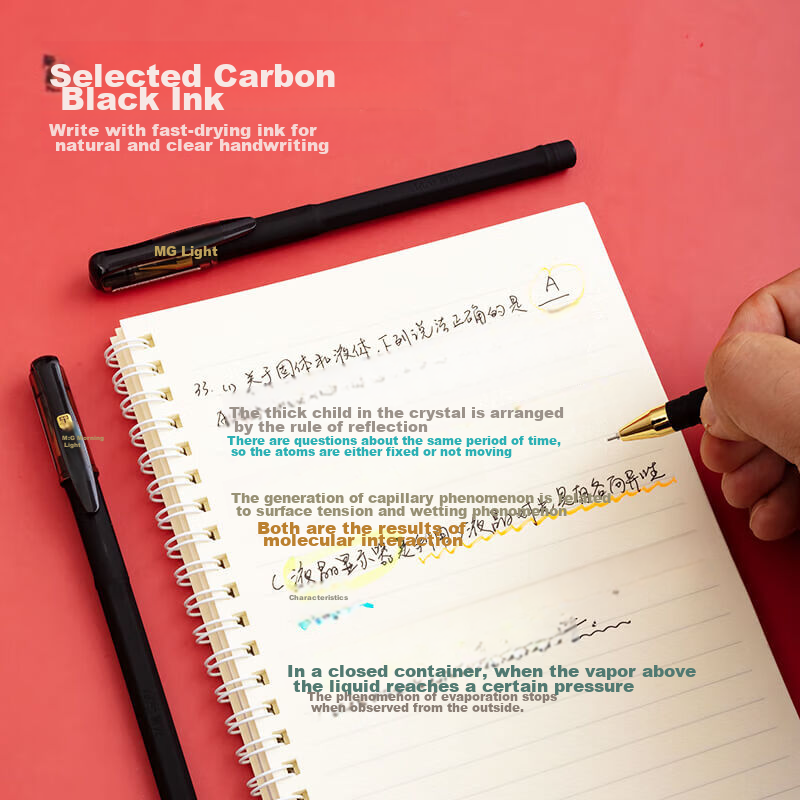 Selected Carbon
Black Ink
Write with fast-drying ink for
natural and clear handwriting
MG Light
M:G Morning
Light
A
33. (1) 关于固体和液体,下列说法正确的是
A
The thick child in the crystal is arranged
by the rule of reflection
There are questions about the same period of time,
so the atoms are either fixed or not moving
The generation of capillary phenomenon is related
to surface tension and wetting phenomenon
Both are the results of
molecular interaction
C 液晶显示器是利用液晶的光学各向异性
Characteristics
In a closed container, when the vapor above
the liquid reaches a certain pressure
The phenomenon of evaporation stops
when observed from the outside.